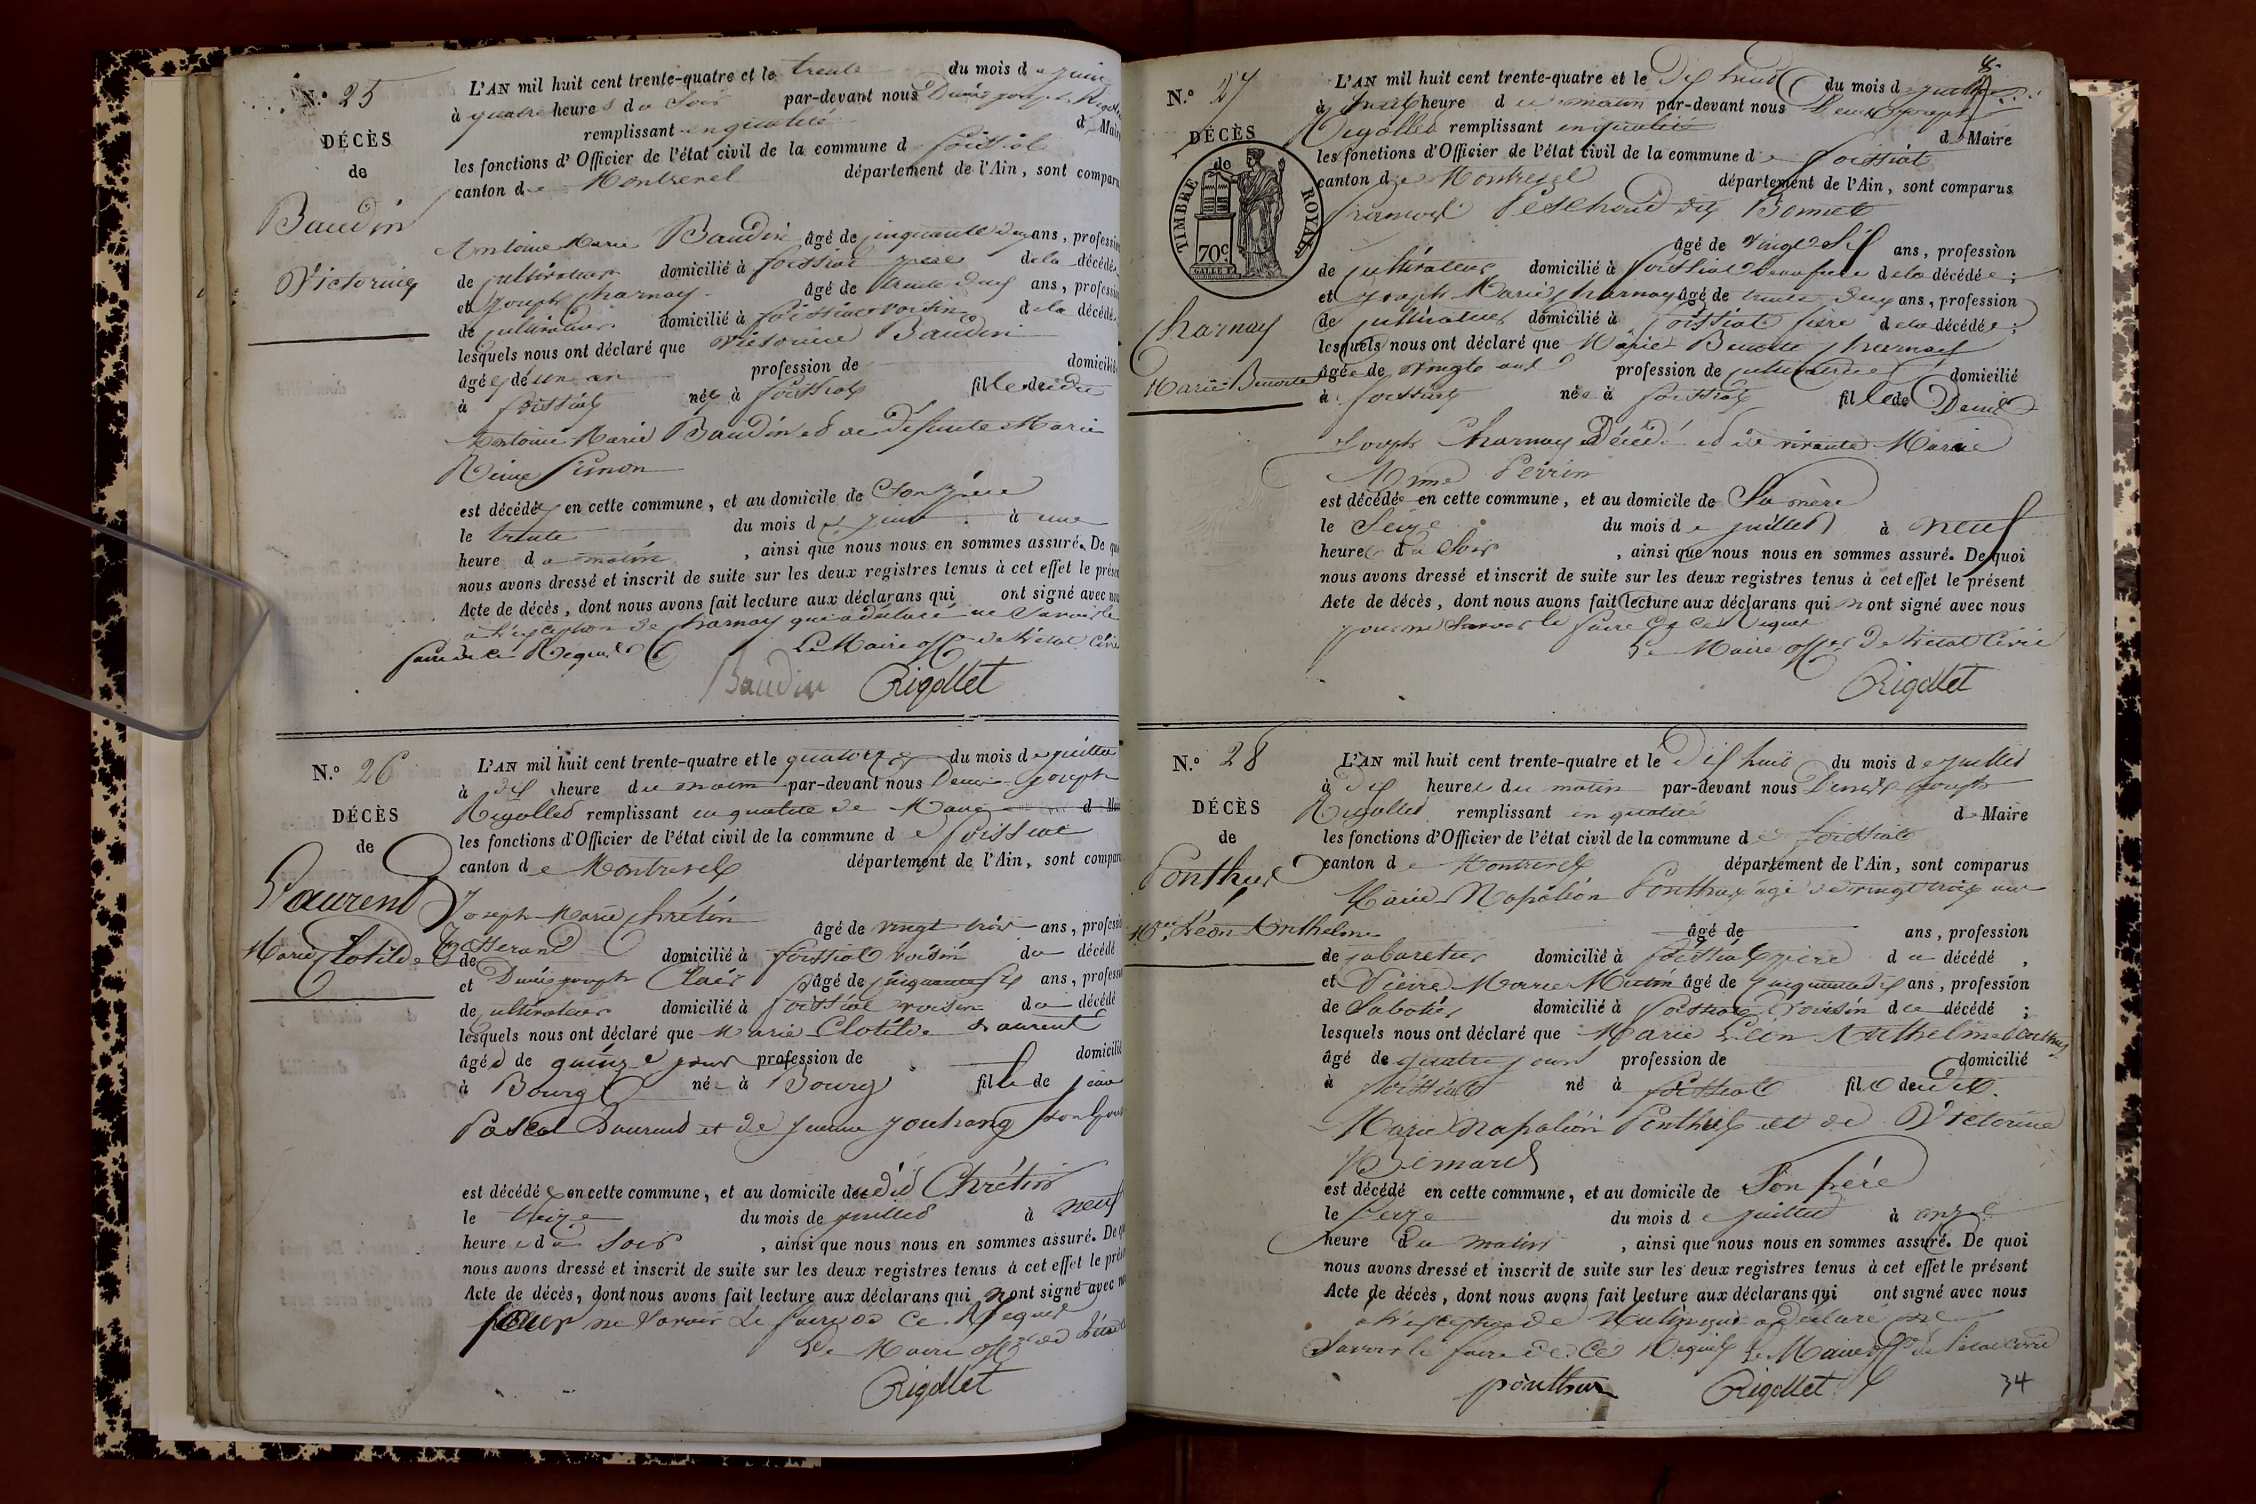 N.º 25
DÉCÈS
de
Baudin
Victorine
L'AN mil huit cent trente-quatre et le trente du mois de juin
à quatre heures du soir par-devant nous Denis joseph
remplissant en qualité d Maire
les fonctions d'Officier de l'état civil de la commune d foissiat
canton de Montrevel département de l'Ain, sont comparus
Antoine Marie Baudin âgé de cinquante deux ans, profession
de cultivateur domicilié à foissiat père de la décédée
et joseph charnay âgé de trente deux ans, profession
de cultivateur domicilié à foissiat voisin de la décédée
lesquels nous ont déclaré que Victorine Baudin
âgée de un an profession de domicilié
à foissiat née à foissiat fille de du dit
Antoine Marie Baudin et de défunte Marie
Reine Simon
est décédée en cette commune, et au domicile de son père
le trente du mois de juin à une
heure du matin, ainsi que nous nous en sommes assuré. De quoi
nous avons dressé et inscrit de suite sur les deux registres tenus à cet effet le présent
Acte de décès, dont nous avons fait lecture aux déclarans qui ont signé avec nous
à l'exception de charnay qui a déclaré ne savoir le
faire de ce Requis Le Maire off de l'état civil
Baudin Rigollet
N.º 26
DÉCÈS
de
Laurent
Marie Clotilde
L'AN mil huit cent trente-quatre et le quatorze du mois de juillet
à dix heure du matin par-devant nous Denis Joseph
Rigollet remplissant en qualité de Maire d
les fonctions d'Officier de l'état civil de la commune de foissiat
canton de Montrevel département de l'Ain, sont comparus
Joseph Marie Chrétin âgé de vingt trois ans, profession
de Tisserand domicilié à foissiat voisin du décédé
et Denis joseph Clair âgé de cinquante six ans, profession
de cultivateur domicilié à foissiat voisin du décédé
lesquels nous ont déclaré que Marie Clotilde Laurent
âgé de quinze jours profession de domicilié
à Bourg né à Bourg fille de jean
Pascal Laurent et de jeanne
est décédé en cette commune, et au domicile de dudit Chrétin
le treize du mois de juillet à neuf
heure du soir, ainsi que nous nous en sommes assuré. De quoi
nous avons dressé et inscrit de suite sur les deux registres tenus à cet effet le présent
Acte de décès, dont nous avons fait lecture aux déclarans qui n'ont signé avec nous
pour ne savoir le faire de ce Requis
Le Maire off de l'état
Rigollet
8
N.º 27
DÉCÈS
de
TIMBRE ROYAL
70c
Charnay
Marie Benoite
L'AN mil huit cent trente-quatre et le dix huit du mois de juillet
à huit heure du matin par-devant nous Denis joseph
Rigollet remplissant en qualité de Maire
les fonctions d'Officier de l'état civil de la commune de foissiat
canton de Montrevel département de l'Ain, sont comparus
françois Pesehoud dit Bonnet
âgé de vingt six ans, profession
de cultivateur domicilié à foissiat beau frère de la décédée;
et joseph Marie charnay âgé de trente deux ans, profession
de cultivateur domicilié à foissiat frère de la décédée;
lesquels nous ont déclaré que Marie Benoite charnay
âgée de vingt ans profession de cultivatrice domicilié
à foissiat née à foissiat fille de Denis
joseph charnay décédé et de vivante Marie
Anne Perrin
est décédée en cette commune, et au domicile de sa mère
le seize du mois de juillet à neuf
heures du soir, ainsi que nous nous en sommes assuré. De quoi
nous avons dressé et inscrit de suite sur les deux registres tenus à cet effet le présent
Acte de décès, dont nous avons fait lecture aux déclarans qui n'ont signé avec nous
pour ne savoir le faire de ce Requis
Le Maire offer de l'état civil
Rigollet
N.º 28
DÉCÈS
de
Ponthus
Mie Léon Anthelme
L'AN mil huit cent trente-quatre et le dix huit du mois de juillet
à dix heures du matin par-devant nous Denis joseph
Rigollet remplissant en qualité de Maire
les fonctions d'Officier de l'état civil de la commune de foissiat
canton de Montrevel département de l'Ain, sont comparus
Marie Napoléon Ponthus âgé de vingt trois ans
âgé de ans, profession
de cabaretier domicilié à foissiat père du décédé,
et Pierre Marie Mutin âgé de cinquante dix ans, profession
de Sabotier domicilié à foissiat voisin du décédé;
lesquels nous ont déclaré que Marie Léon Anthelme Ponthus
âgé de quatre jours profession de domicilié
à foissiat né à foissiat fils de du dit
Marie Napoléon Ponthus et de Victorine
Bernard
est décédé en cette commune, et au domicile de son père
le seize du mois de juillet à onze
heure du matin, ainsi que nous nous en sommes assuré. De quoi
nous avons dressé et inscrit de suite sur les deux registres tenus à cet effet le présent
Acte de décès, dont nous avons fait lecture aux déclarans qui ont signé avec nous
à l'exception de Mutin qui a déclaré ne
savoir le faire de ce Requis Le Maire off de l'état civil
ponthus Rigollet
34